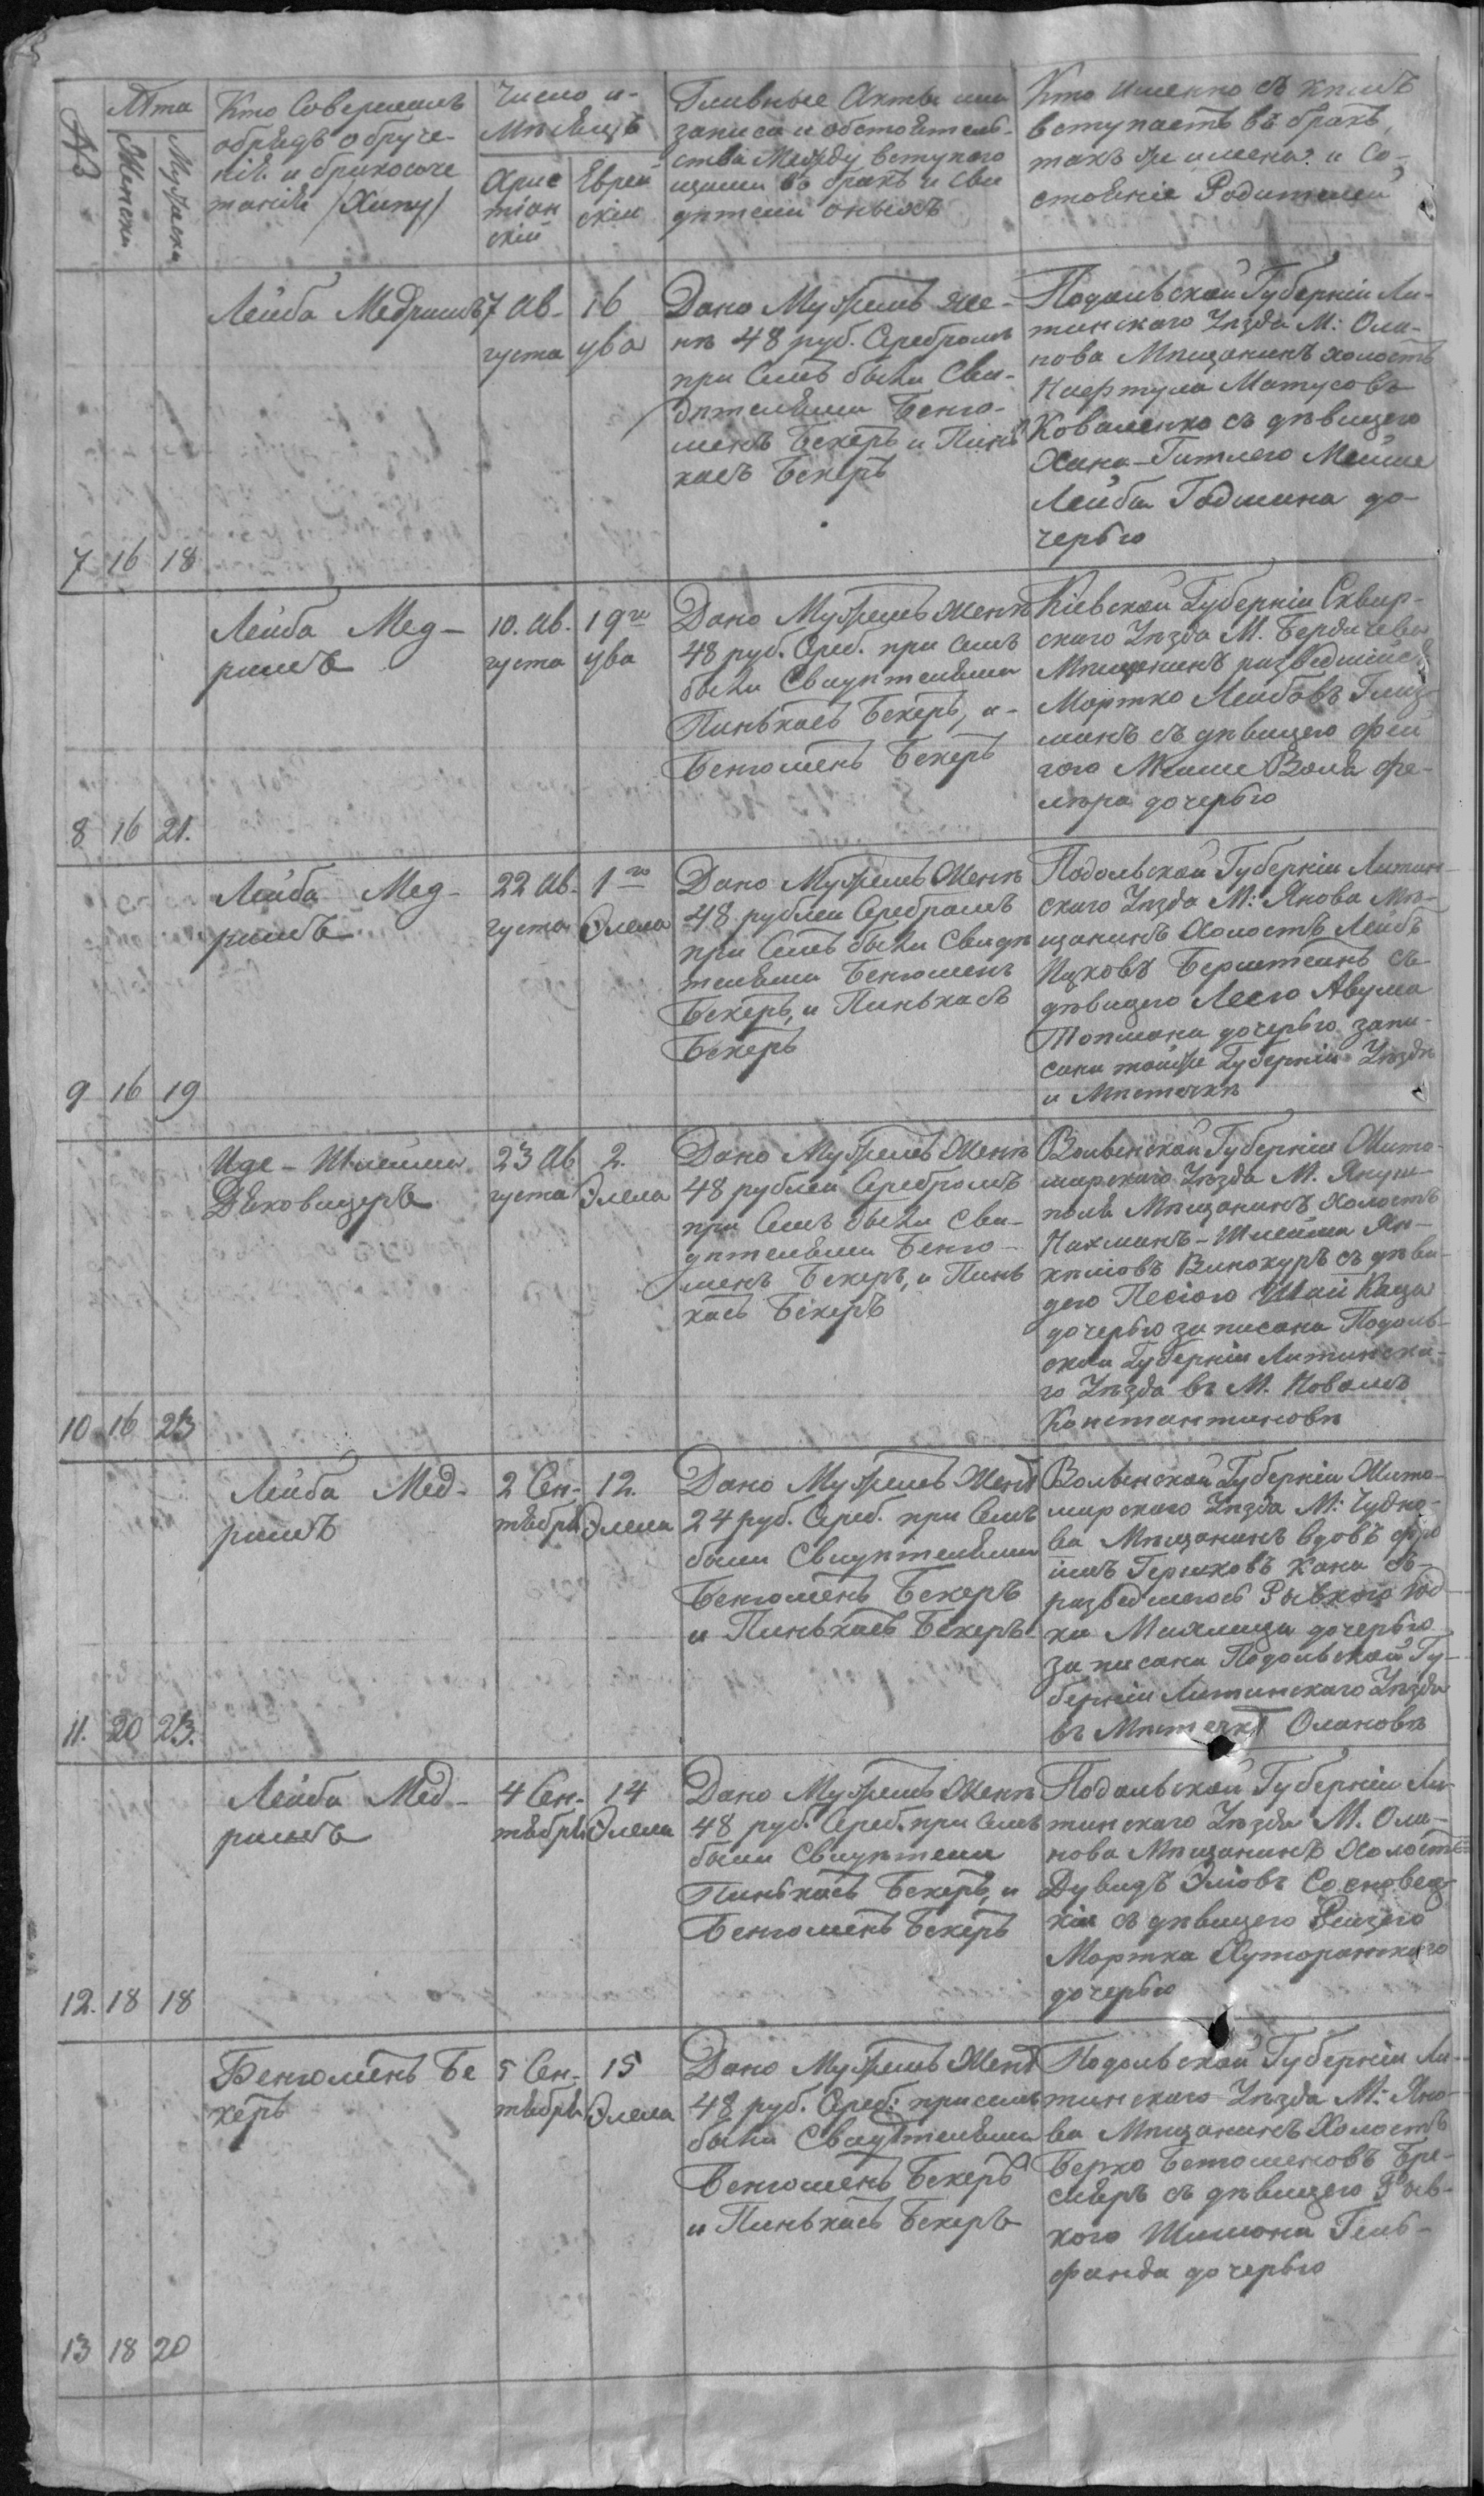 №
Лѣта
Женски
Мужески
Кто Совершилъ
обрядъ обруче-
нія и бракосоче
танія /Хипу/
Число и
Мѣсяцъ
Хрис
тіан
скій
Еврей
скій
Главные Акты или
записи и обстоятель-
ства Между вступаю
щими въ бракъ и Сви
дѣтели оныхъ
Кто именно съ кемъ
вступаетъ въ бракъ,
такъ же имена и Со-
стояніе Родителей
7 16 18
Лейба Медришъ
7 Ав-
густа
16
ува
Дано Мужемъ же-
нѣ 48 руб. Серебромъ
при Семъ были Сви-
дѣтелями Бенго-
менъ Бекеръ и Пинь
касъ Бекеръ
Подольской Губерніи Ли-
тинскаго Уѣзда М: Ула-
нова Мѣщанинъ холостъ
Нафтула Матусовъ
Коваленко съ дѣвицею
Хана-Гитлею Мейше
Лейба Годмана до-
черью
8 16 21.
Лейба Мед-
ришъ
10. Ав-
густа
19го
ува
Дано Мужемъ женѣ
48 руб. Сереб. при Семъ
были Свидѣтелями
Пинькасъ Бекеръ, и-
Бенгоменъ Бекеръ
Кіевской Губерніи Сквир-
скаго Уѣзда М. Бердичева
Мѣщанинъ разведшійся
Мортко Лейбовъ Глиз
манъ съ дѣвицею Фей
гою Мейше Волфа Фе-
лера дочерью
9 16 19
Лейба Мед-
ришъ
22 Ав-
густа
1го
Элела
Дано Мужемъ Женѣ
48 рублей Серебромъ
при Семъ были Свидѣ
телями Бенгоменъ
Бекеръ, и Пинькасъ
Бекеръ
Подольской Губерніи Литин-
скаго Уѣзда М: Янова Мѣ-
щанинъ Холостъ Лейбъ
Ицковъ Берштеинъ съ
дѣвицею Леею Авума
Топмана дочерью запи-
сана тойже Губерніи Уѣздѣ
и Мѣстечкѣ
10 16 23
Иде-Шлейма
Дяковицеръ
23 Ав
густа
2.
Элела
Дано Мужемъ Женѣ
48 рублей Серебромъ
при Семъ были Сви-
дѣтелями Бенго-
менъ Бекеръ, и Пинь
касъ Бекеръ
Волынской Губерніи Жито-
мирскаго Уѣзда М. Януш-
поля Мѣщанинъ Холостъ
Нахманъ-Шлейма Ян-
келовъ Винокуръ съ дѣви-
цею Песіею Шай Каца
дочерью записана Подоль-
ской Губерніи Литинска-
го Уѣзда въ М. Новомъ
Константиновѣ
11. 20 23.
Лейба Мед-
ришъ
2 Сен-
тября
12.
Элела
Дано Мужемъ Женѣ
24 руб. Сереб. при Семъ
были Свидѣтелями
Бенгоменъ Бекеръ
и Пинькасъ Бекеръ
Волынской Губерніи Жито-
мирскаго Уѣзда М: Чудно-
ва Мѣщанинъ вдовъ Фро
имъ Гершковъ Кана съ
разведшеюся Рывкою Юд
ка Маялица дочерью
записана Подольской Гу-
берніи Литинскаго Уѣзда
въ Мѣстечкѣ Улановѣ
12. 18 18
Лейба Мед-
ришъ
4 Сен-
тября
14
Элела
Дано Мужемъ Женѣ
48 руб. Сереб. при Семъ
были Свидѣтели
Пинькасъ Бекеръ, и
Бенгоменъ Бекеръ
Подольской Губерніи Ли-
тинскаго Уѣзда М. Ула-
нова Мѣщанинъ Холостъ
Дувидъ Эліовъ Сосновец
кій съ дѣвицею Рейзею
Мортка Хуторанскаго
дочерью
13 18 20
Бенгоменъ Бе
керъ
5 Сен-
тября
15
Элела
Дано Мужемъ Женѣ
48 руб. Сереб: при семъ
были Свидѣтелями
Бенгоменъ Бекеръ
и Пинькасъ Бекеръ
Подольской Губерніи Ли-
тинскаго Уѣзда М: Яно-
ва Мѣщанинъ Холостъ
Берко Бенгоменовъ Бре-
слеръ съ дѣвицею Рыв-
кою Шимона Гель-
фанда дочерью